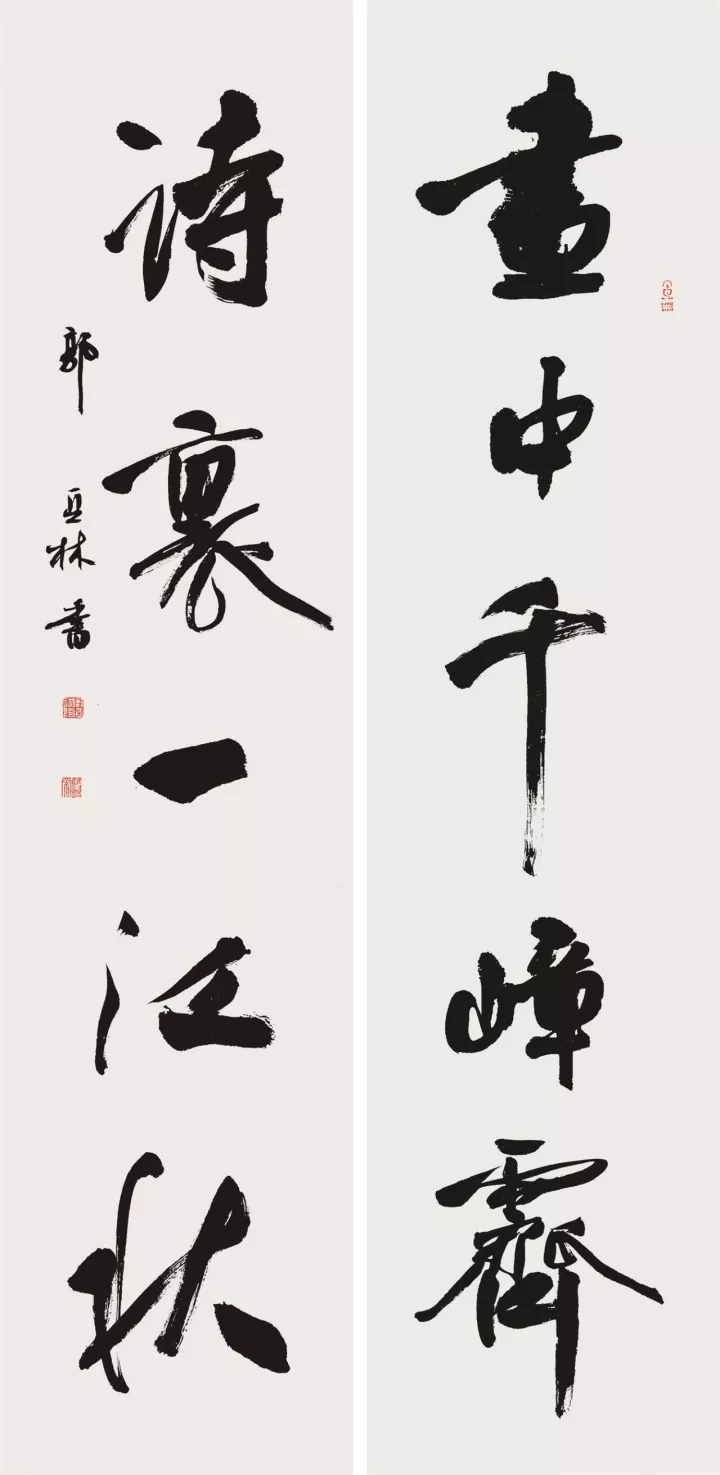 畫中千嶂霽
詩裏一江秋
郭亞林書